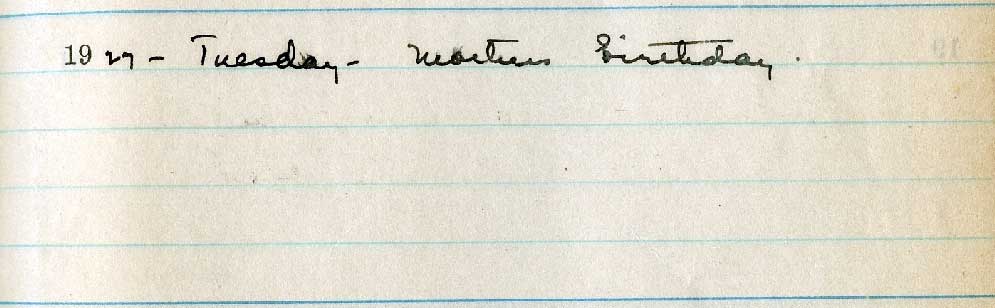 1927 - Tuesday - Mothers Birthday.